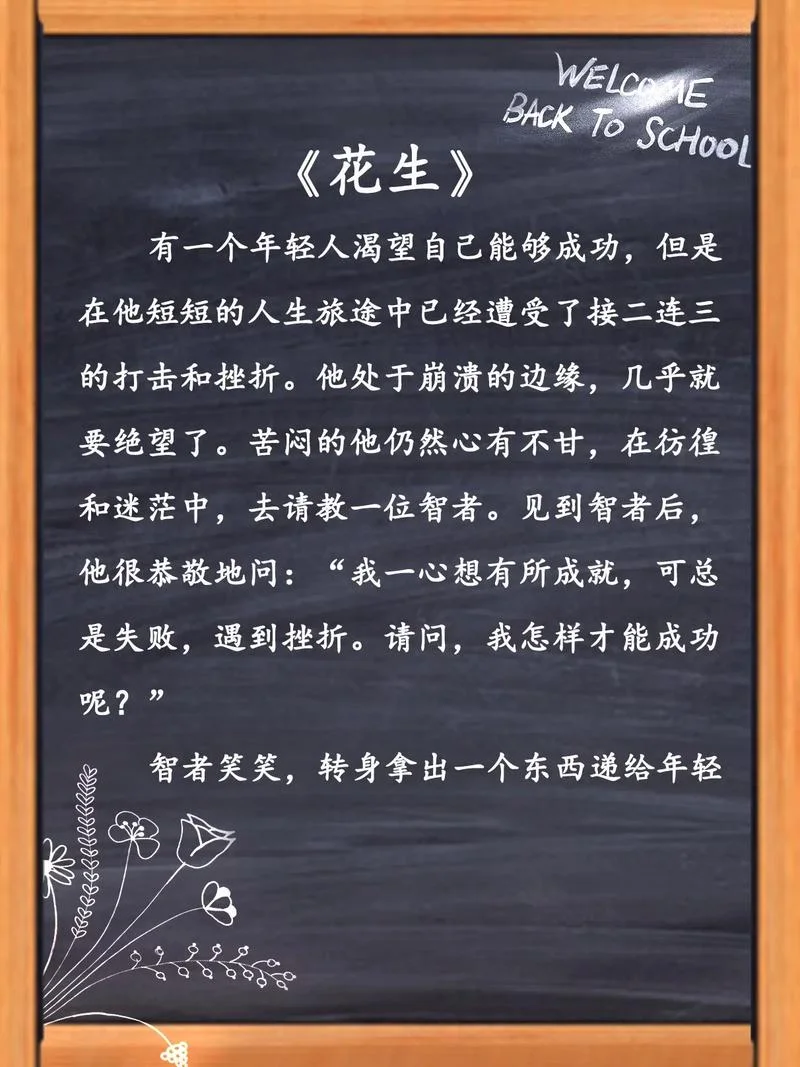 WELCOME
BACK TO SCHOOL
《花生》
有一个年轻人渴望自己能够成功，但是
在他短短的人生旅途中已经遭受了接二连三
的打击和挫折。他处于崩溃的边缘，几乎就
要绝望了。苦闷的他仍然心有不甘，在彷徨
和迷茫中，去请教一位智者。见到智者后，
他很恭敬地问：“我一心想有所成就，可总
是失败，遇到挫折。请问，我怎样才能成功
呢？”
智者笑笑，转身拿出一个东西递给年轻